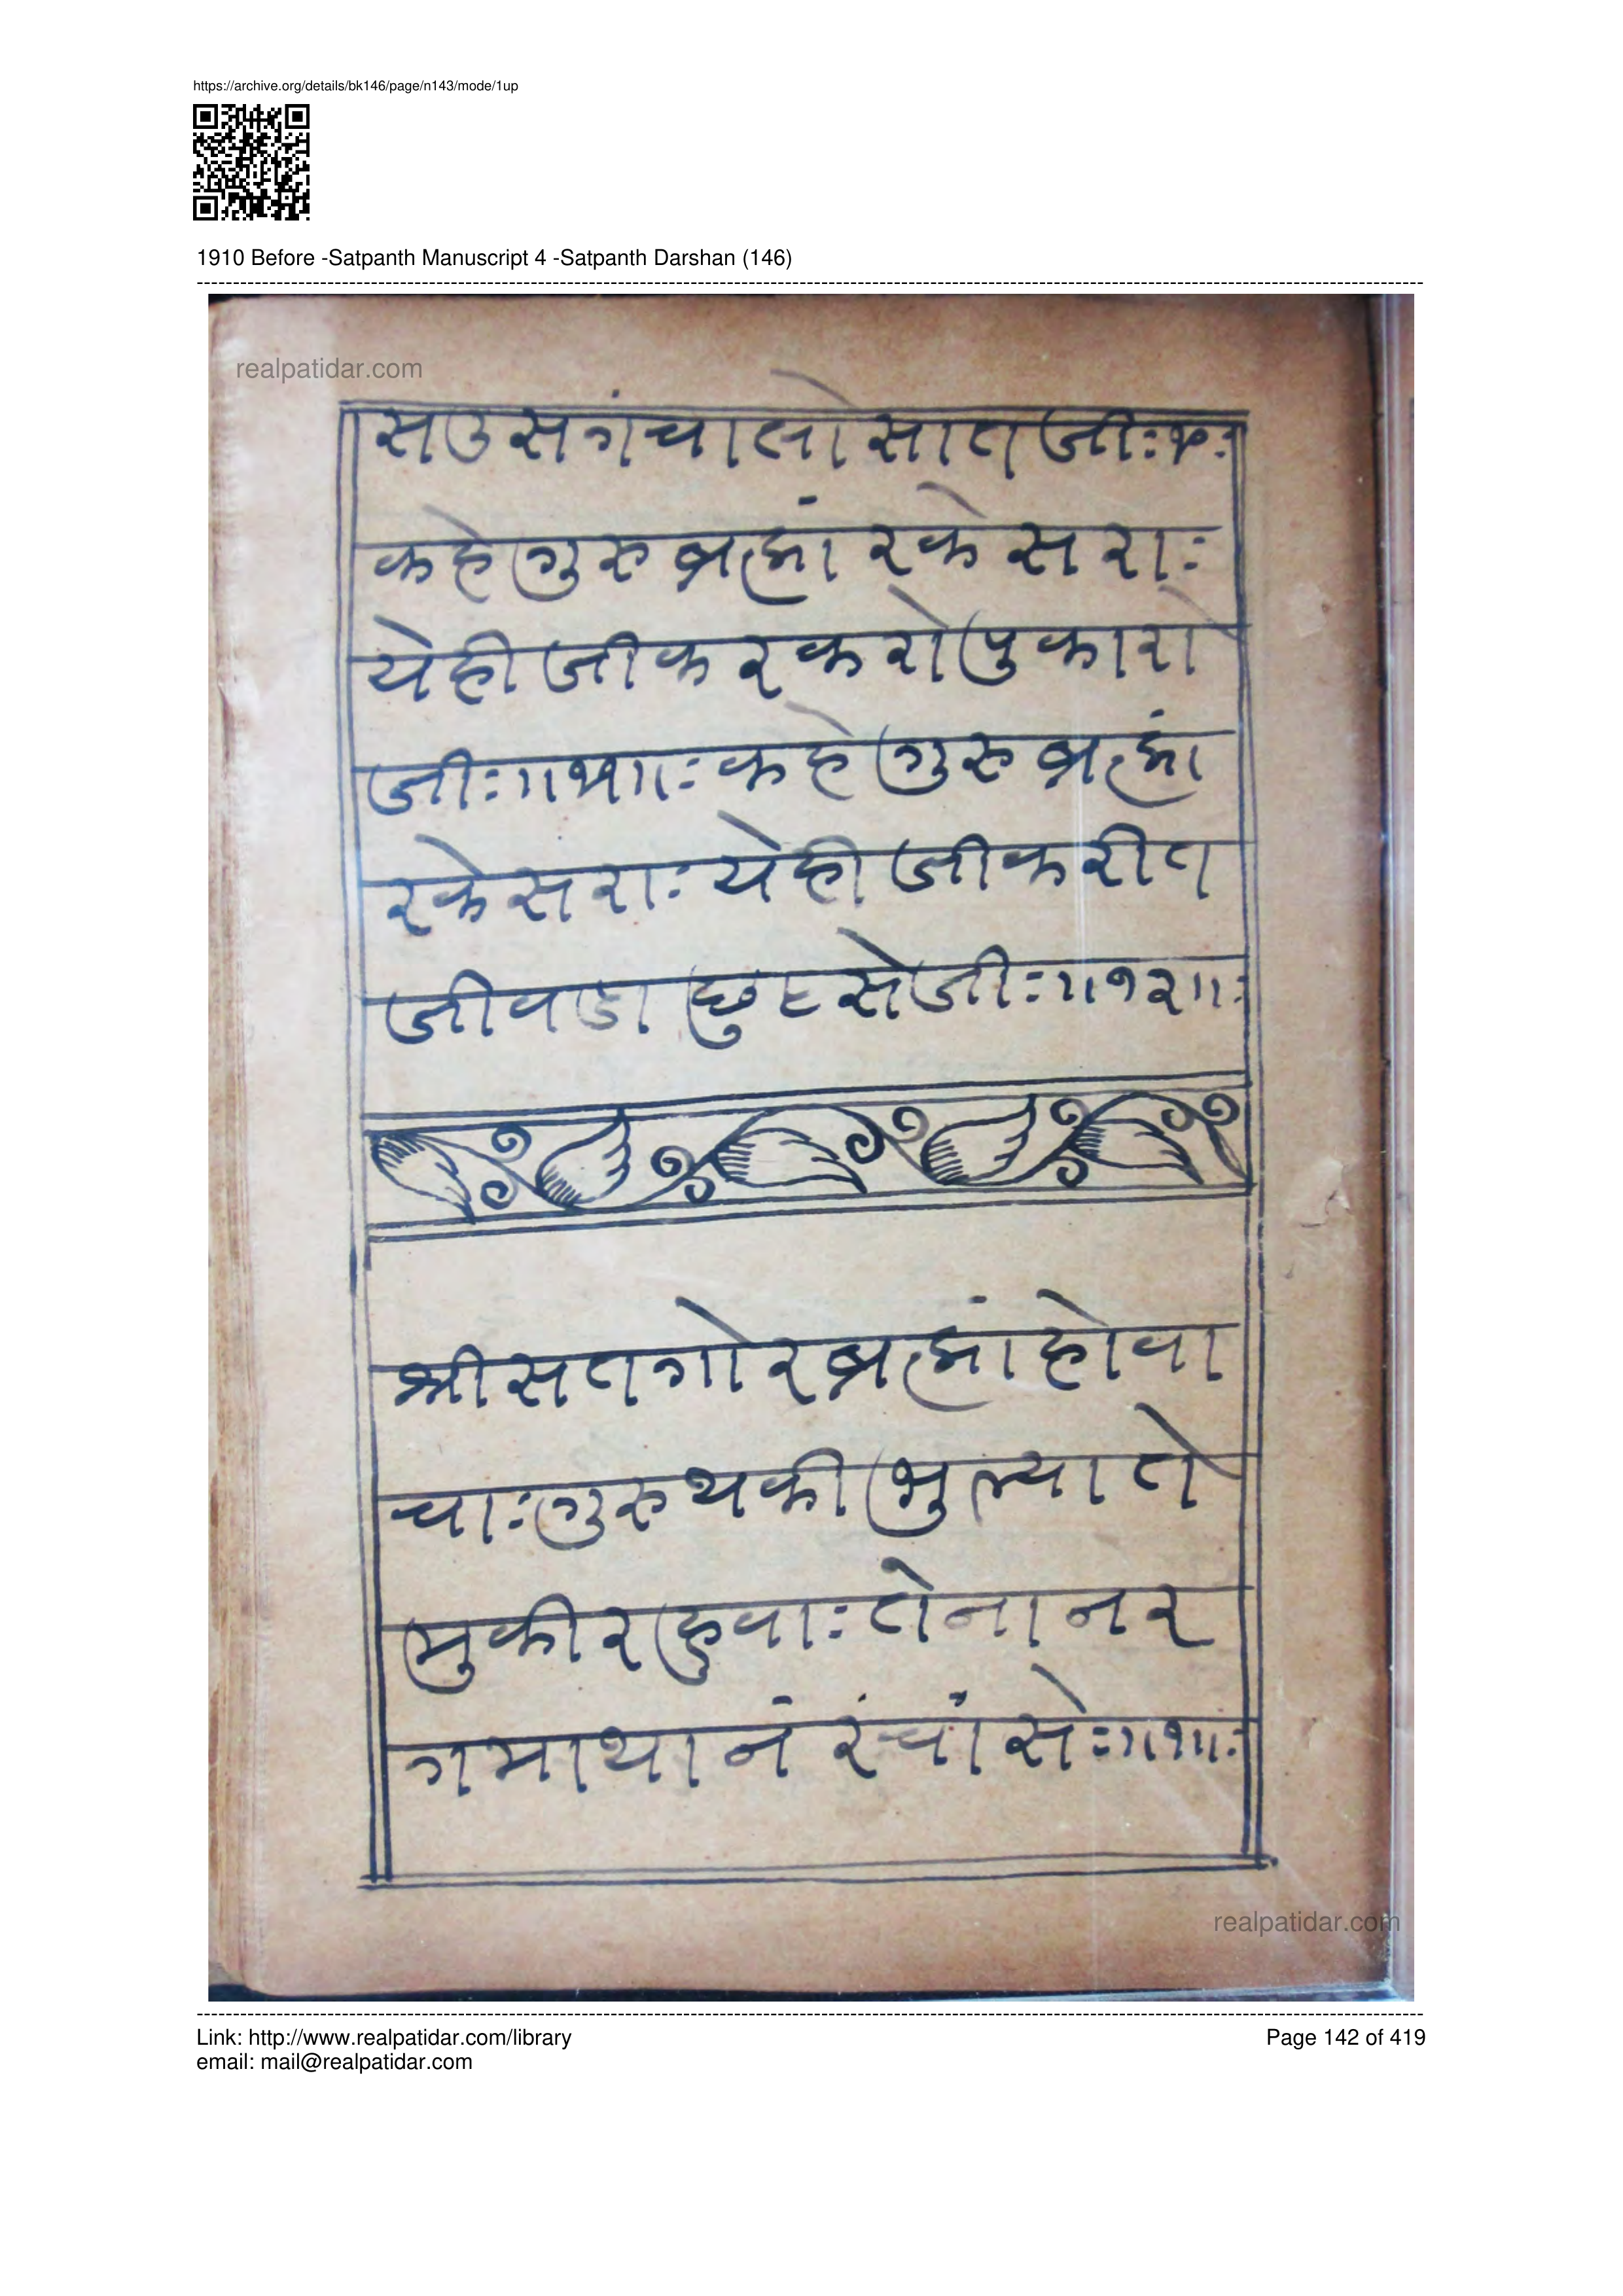 https://archive.org/details/bk146/page/n143/mode/1up
1910 Before -Satpanth Manuscript 4 -Satpanth Darshan (146)
realpatidar.com
सउसगंचालोसातजीः
कहेगुरुब्रह्मांरकेसराः
येहीजीकरकरोपुकारा
जीः॥भ॥ःकहेगुरुब्रह्मां
रकेसराःयेहीजीकरीत
जीवडाछुटसेजीः॥१२॥ः
श्रीसतगोरब्रह्मांहोवा
चाःगुरुथकीभुल्याते
मुकीरहुवाःतेनानर
गमाथानंरंचांसेः॥१॥ः
realpatidar.com
Link: http://www.realpatidar.com/library
Page 142 of 419
email: mail@realpatidar.com